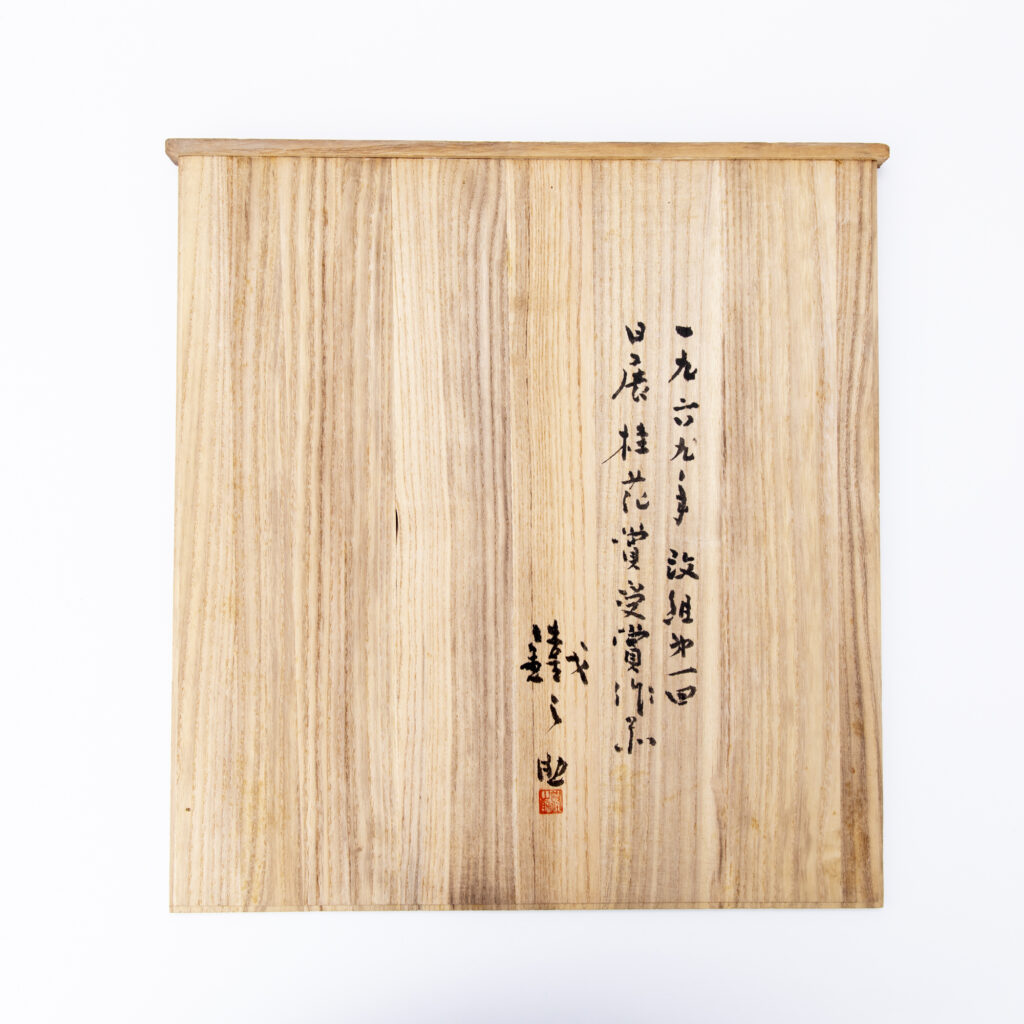 一九六九年 改組第一回
日展 桂花賞受賞作品
鐵之助